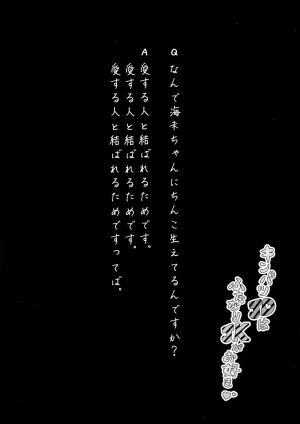 Q なんで海未ちゃんにちんこ生えてるんですか?
A 愛する人と結ばれるためです。
愛する人と結ばれるためです。
愛する人と結ばれるためですってば。
キンパツ
は
ふたなり
がお好き♡